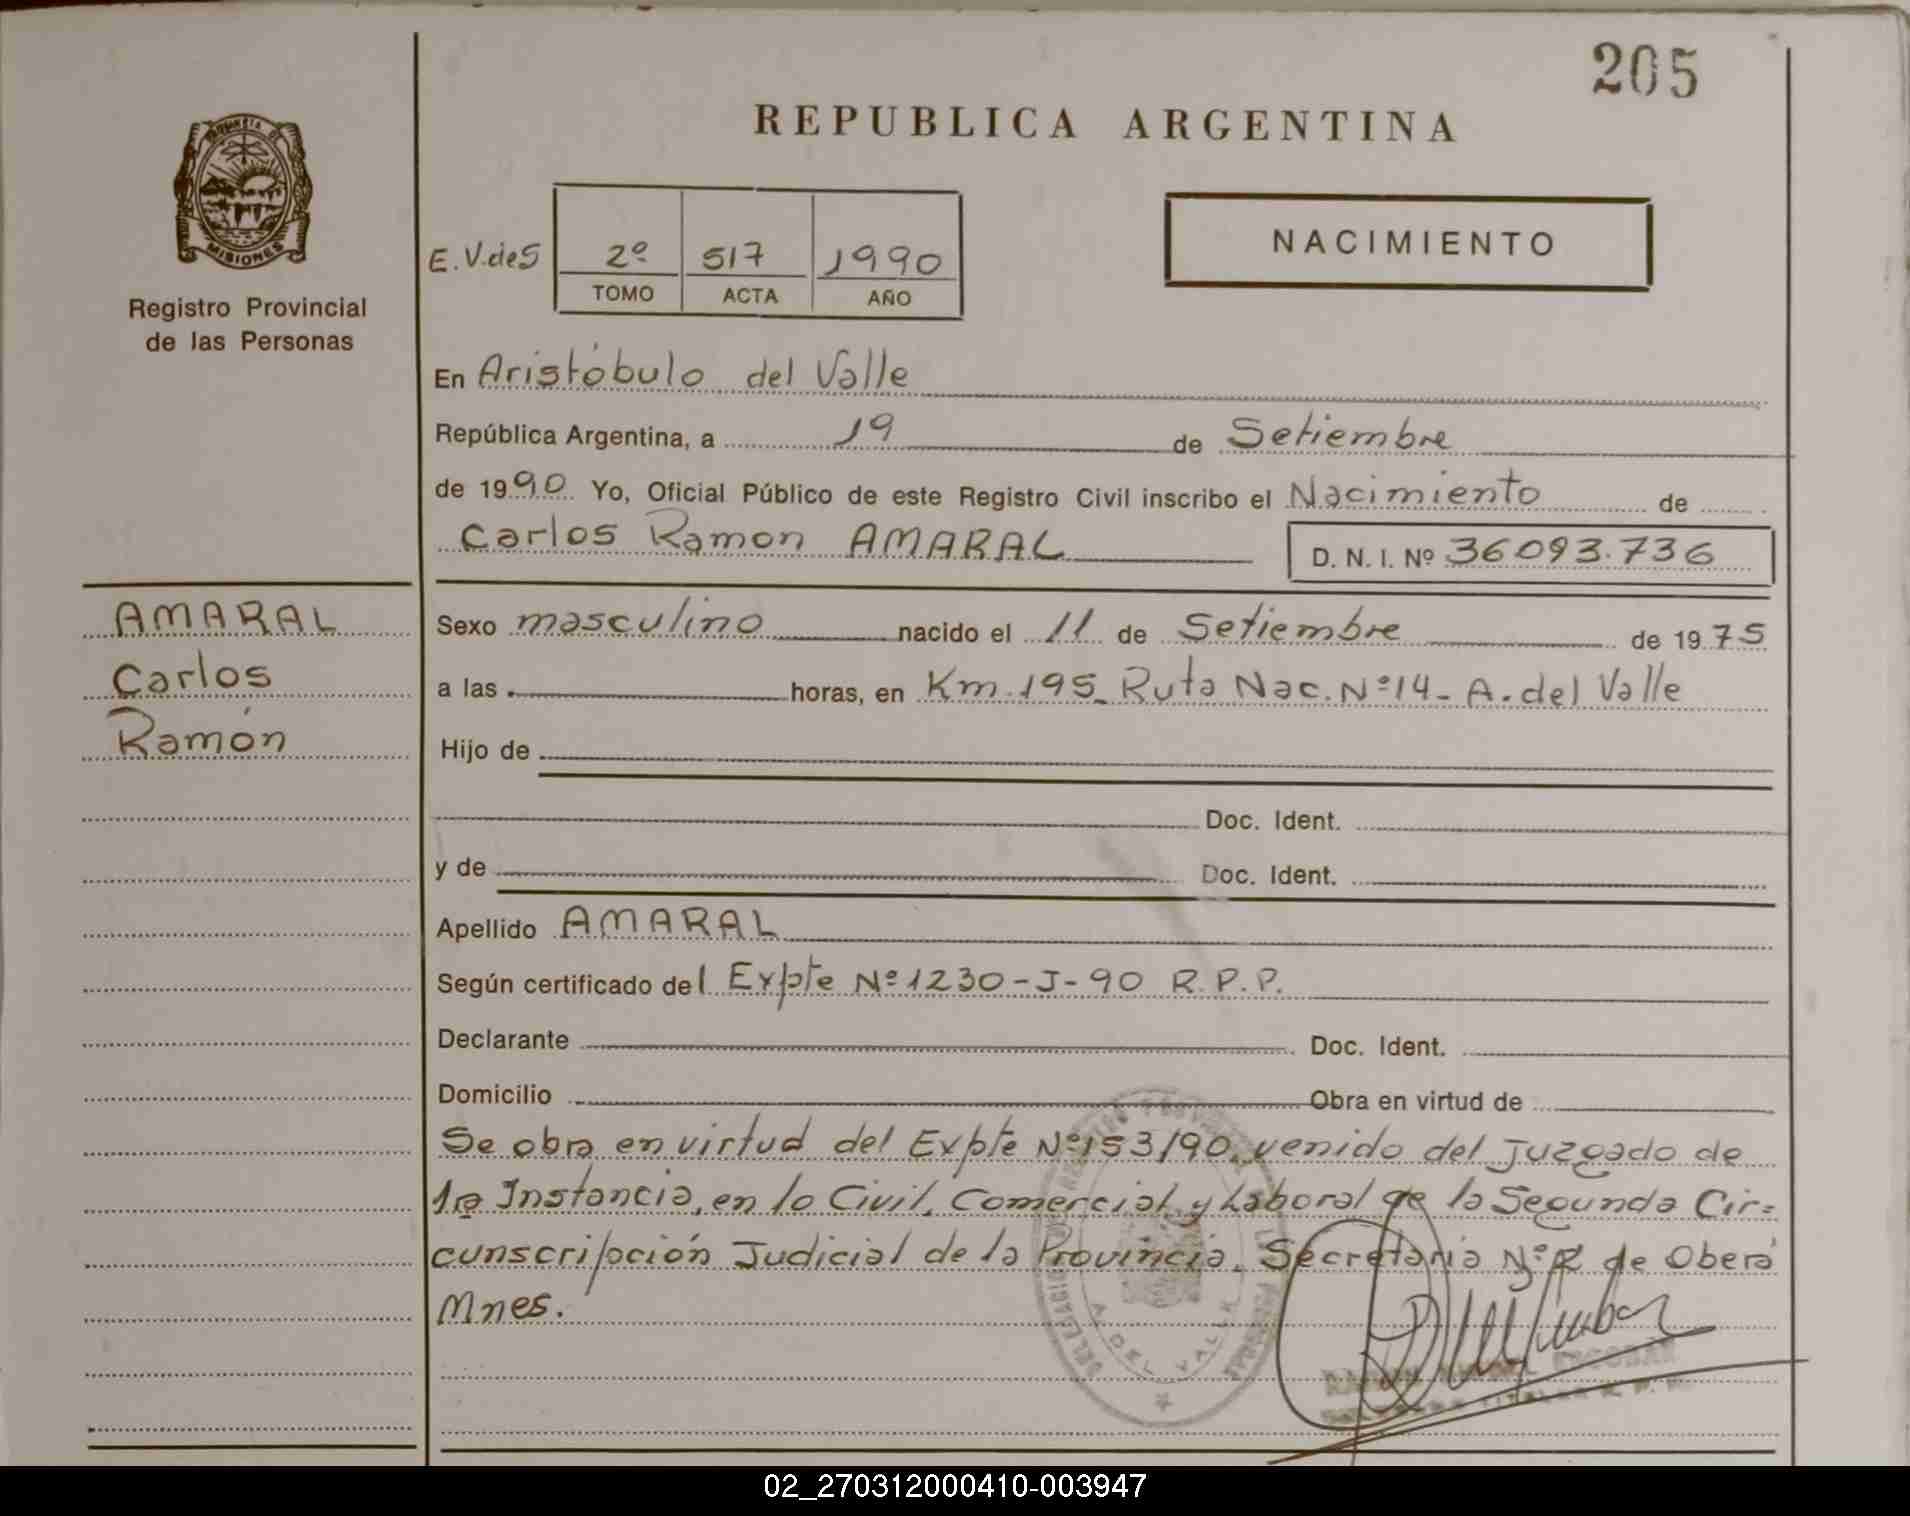 205
REPUBLICA ARGENTINA
PROVINCIA DE
MISIONES
Registro Provincial
de las Personas
E.V.de S 2º 517 1990
TOMO ACTA AÑO
NACIMIENTO
En Aristóbulo del Valle
República Argentina, a 19 de Setiembre
de 1990 Yo, Oficial Público de este Registro Civil inscribo el Nacimiento de
Carlos Ramon AMARAL D. N. I. Nº 36093.736
AMARAL
Carlos
Ramón
Sexo masculino nacido el 11 de Setiembre de 1975
a las horas, en Km.195_Ruta Nac.Nº14-A.del Valle
Hijo de
Doc. Ident.
y de Doc. Ident.
Apellido AMARAL
Según certificado del Expte Nº1230-J-90 R.P.P.
Declarante Doc. Ident.
Domicilio Obra en virtud de
Se obra en virtud del Expte Nº153/90, venido del Juzgado de
1ª Instancia, en lo Civil, Comercial y Laboral de la Segunda Cir=
cunscripción Judicial de la Provincia. Secretaria Nº2 de Oberá
Mnes.
A. DEL VALLE
ESCOBAR
02_270312000410-003947